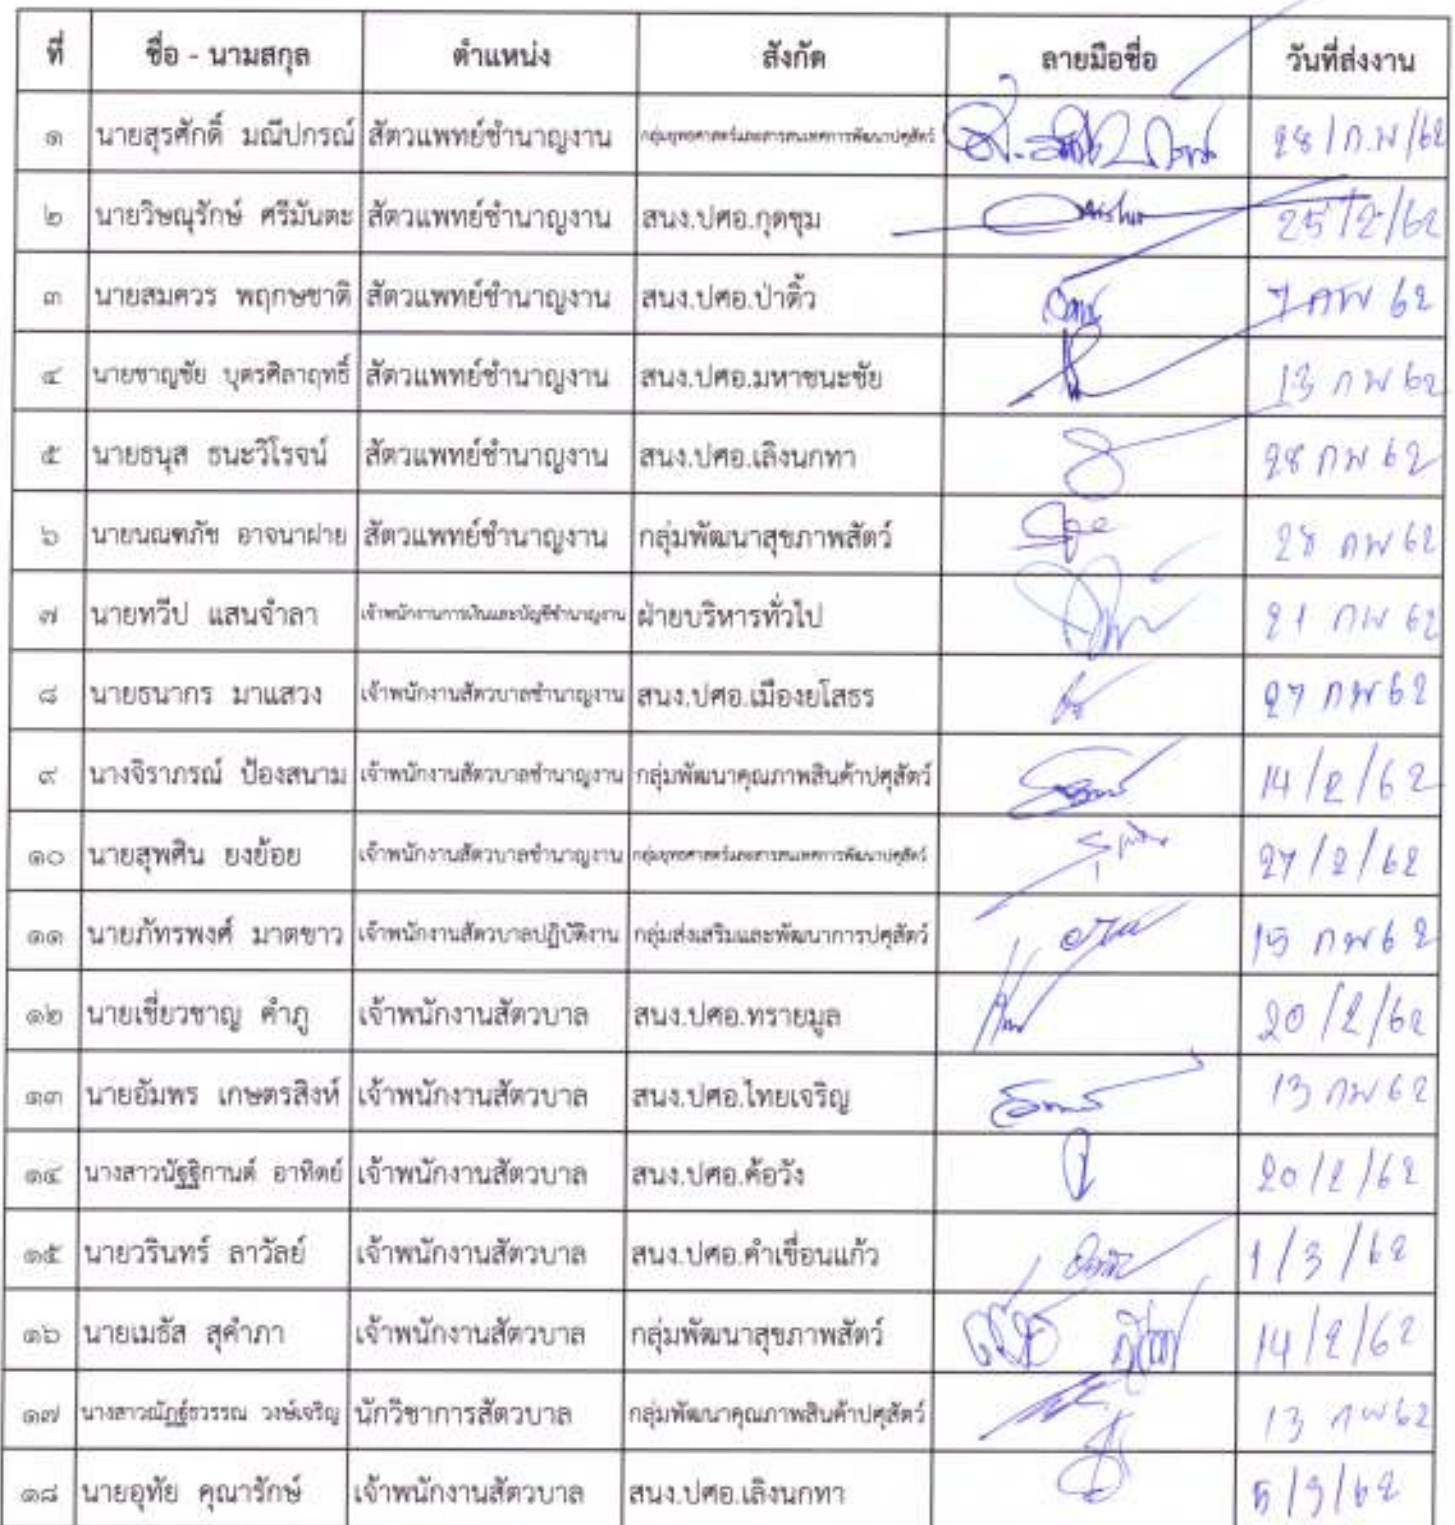 ที่ ชื่อ - นามสกุล ตำแหน่ง สังกัด ลายมือชื่อ วันที่ส่งงาน
๑ นายสุรศักดิ์ มณีปกรณ์ สัตวแพทย์ชำนาญงาน กลุ่มยุทธศาสตร์และสารสนเทศการพัฒนาปศุสัตว์ 28/ก.พ/62
๒ นายวิษณุรักษ์ ศรีมันตะ สัตวแพทย์ชำนาญงาน สนง.ปศอ.กุดชุม 25/2/62
๓ นายสมควร พฤกษชาติ สัตวแพทย์ชำนาญงาน สนง.ปศอ.ป่าติ้ว 7 กพ 62
๔ นายชาญชัย บุตรศิลาฤทธิ์ สัตวแพทย์ชำนาญงาน สนง.ปศอ.มหาชนะชัย 13 กพ 62
๕ นายธนุส ธนะวิโรจน์ สัตวแพทย์ชำนาญงาน สนง.ปศอ.เลิงนกทา 28 กพ 62
๖ นายนณฑภัช อาจนาฝาย สัตวแพทย์ชำนาญงาน กลุ่มพัฒนาสุขภาพสัตว์ 28 กพ 62
๗ นายทวีป แสนจำลา เจ้าพนักงานการเงินและบัญชีชำนาญงาน ฝ่ายบริหารทั่วไป 21 กพ 62
๘ นายธนากร มาแสวง เจ้าพนักงานสัตวบาลชำนาญงาน สนง.ปศอ.เมืองยโสธร 27 กพ 62
๙ นางจิราภรณ์ ป้องสนาม เจ้าพนักงานสัตวบาลชำนาญงาน กลุ่มพัฒนาคุณภาพสินค้าปศุสัตว์ 14/2/62
๑๐ นายสุพศิน ยงย้อย เจ้าพนักงานสัตวบาลชำนาญงาน กลุ่มยุทธศาสตร์และสารสนเทศการพัฒนาปศุสัตว์ 27/2/62
๑๑ นายภัทรพงศ์ มาตขาว เจ้าพนักงานสัตวบาลปฏิบัติงาน กลุ่มส่งเสริมและพัฒนาการปศุสัตว์ 15 กพ 62
๑๒ นายเชี่ยวชาญ คำภู เจ้าพนักงานสัตวบาล สนง.ปศอ.ทรายมูล 20/2/62
๑๓ นายอัมพร เกษตรสิงห์ เจ้าพนักงานสัตวบาล สนง.ปศอ.ไทยเจริญ 13 กพ 62
๑๔ นางสาวนัฐฐิกานต์ อาทิตย์ เจ้าพนักงานสัตวบาล สนง.ปศอ.ค้อวัง 20/2/62
๑๕ นายวรินทร์ ลาวัลย์ เจ้าพนักงานสัตวบาล สนง.ปศอ.คำเขื่อนแก้ว 1/3/62
๑๖ นายเมธัส สุคำภา เจ้าพนักงานสัตวบาล กลุ่มพัฒนาสุขภาพสัตว์ 14/2/62
๑๗ นางสาวณัฏฐ์ธวรรณ วงษ์เจริญ นักวิชาการสัตวบาล กลุ่มพัฒนาคุณภาพสินค้าปศุสัตว์ 13 กพ 62
๑๘ นายอุทัย คุณารักษ์ เจ้าพนักงานสัตวบาล สนง.ปศอ.เลิงนกทา 5/3/62